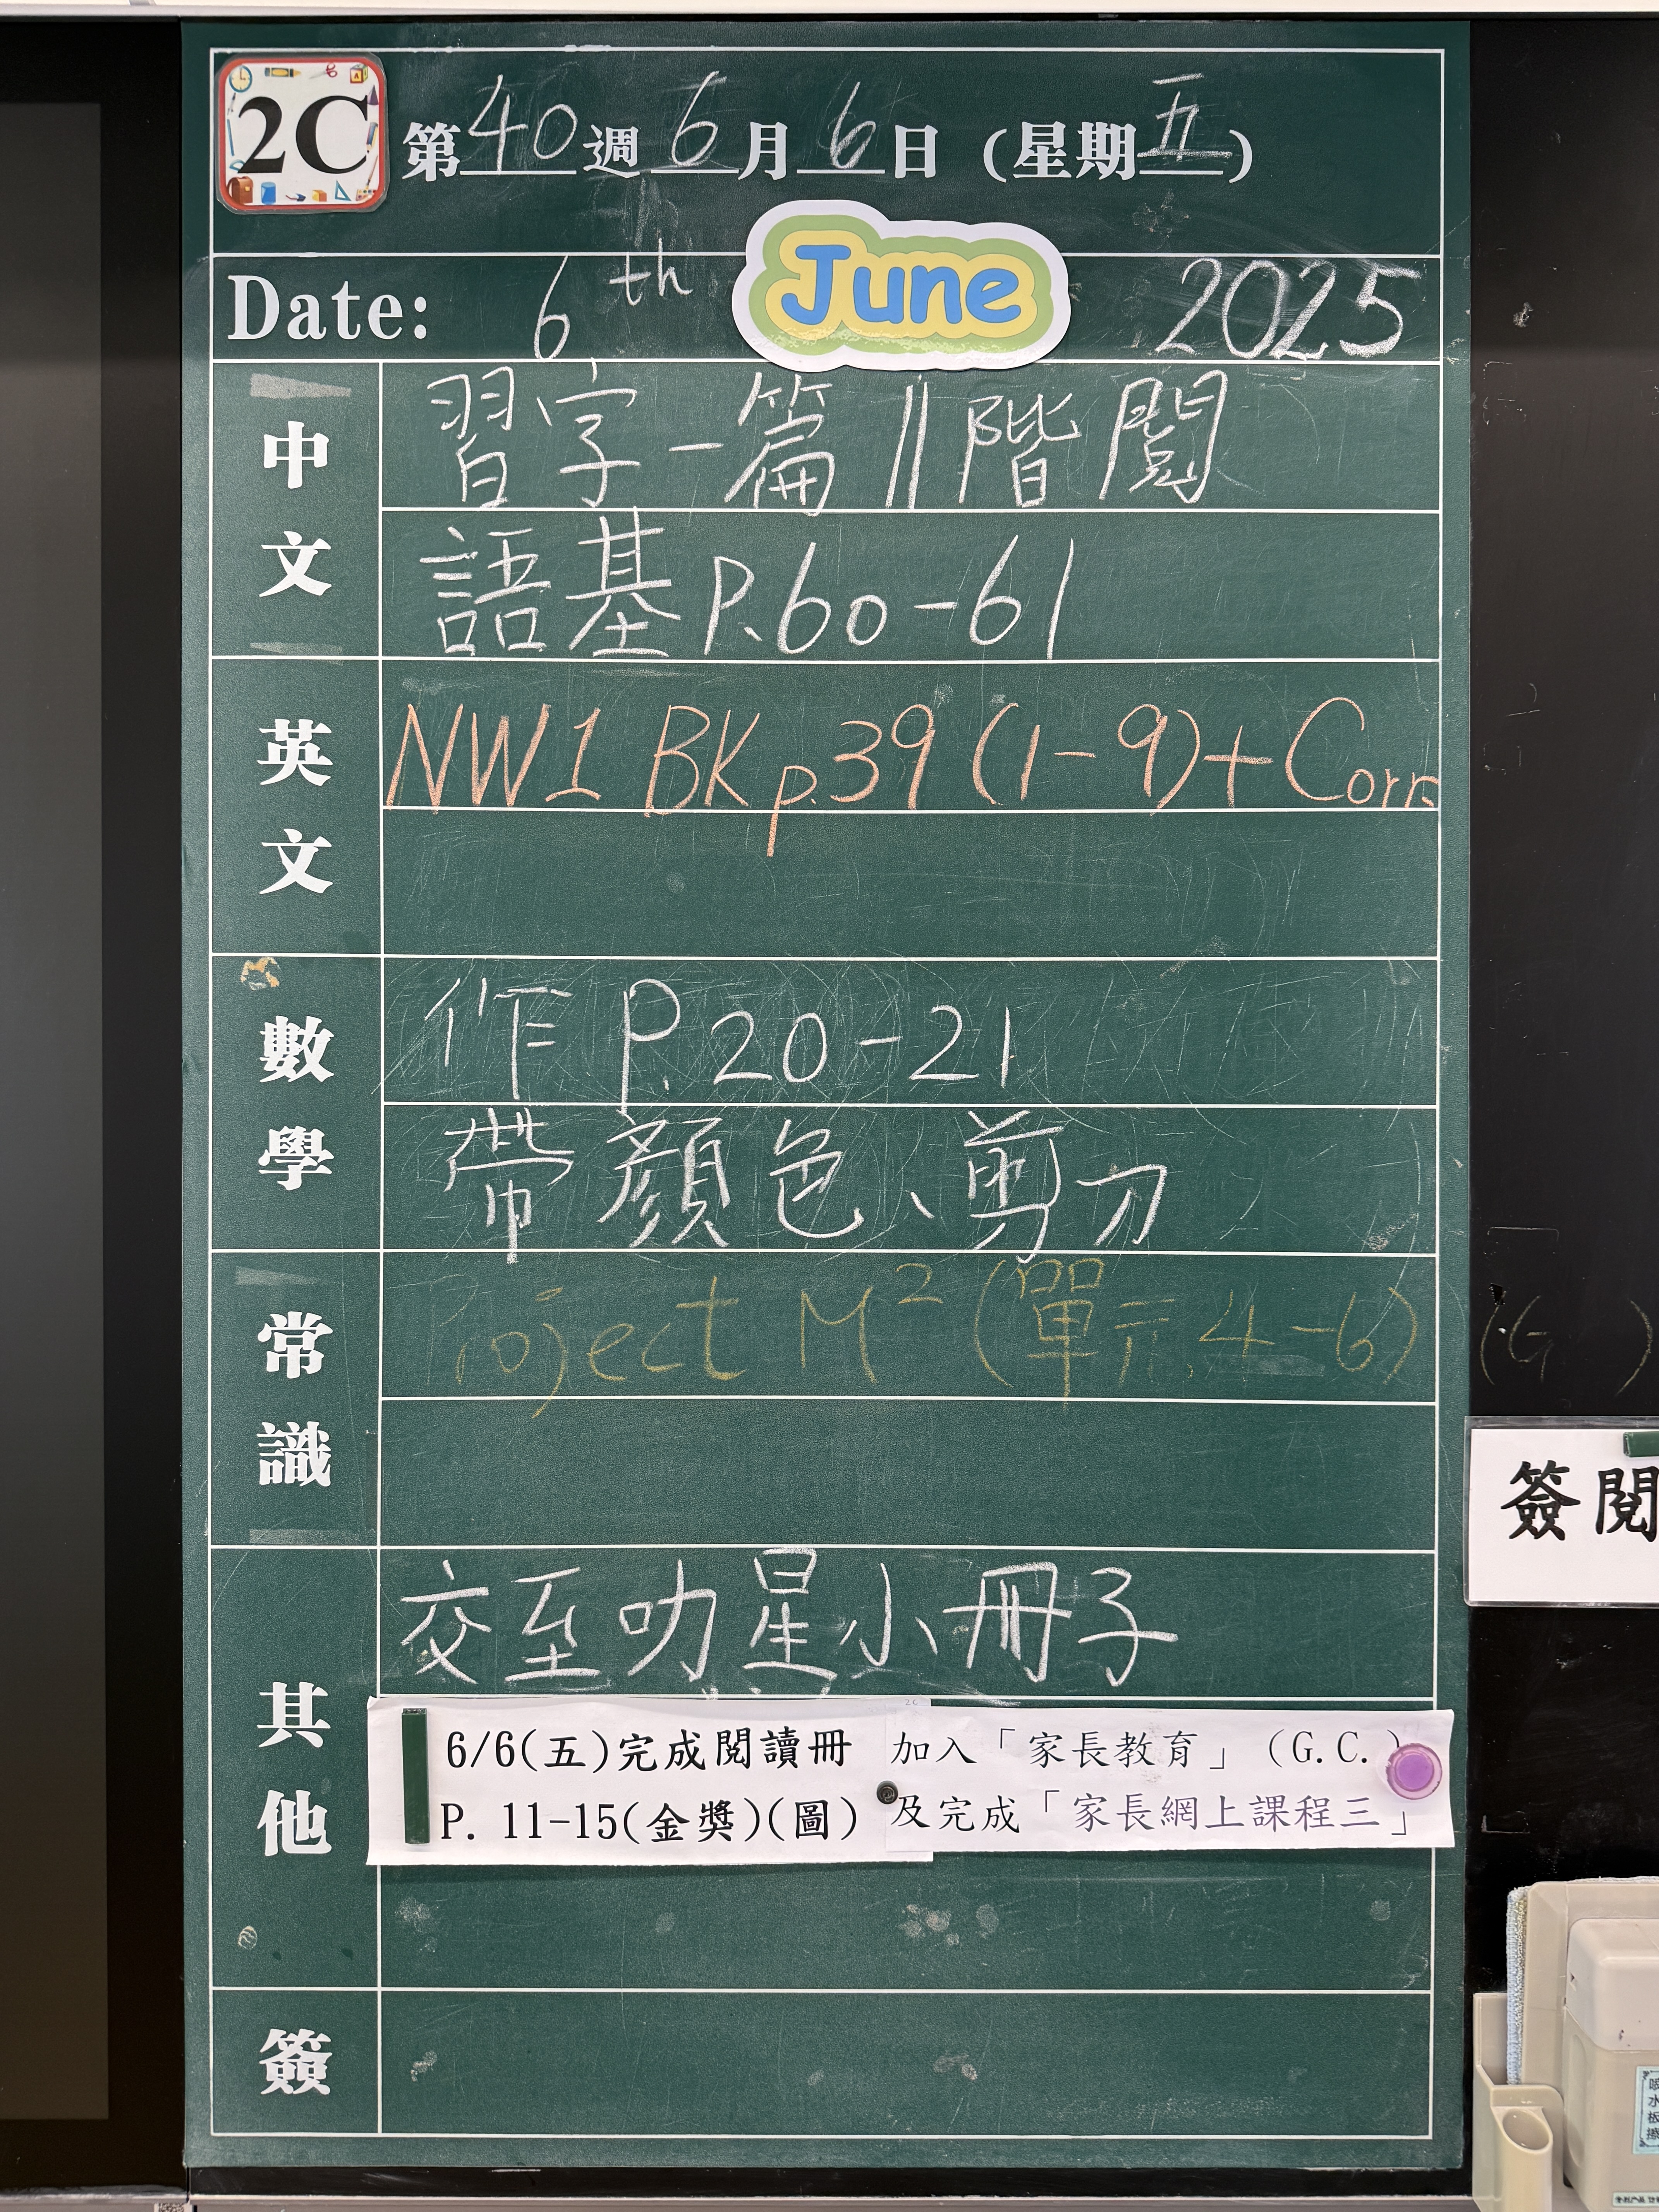 2C
第40週6月6日(星期五)
Date: 6th June 2025
中文
習字一篇 || 階閱
語基P.60-61
英文
NW1 BK p.39 (1-9)+Corr.
數學
作 P.20-21
帶顏色、剪刀
常識
Project M² (單元4-6)
(G )
簽閱
其他
交至叻星小冊子
6/6(五)完成閱讀冊
P. 11-15(金獎)(圖)
加入「家長教育」(G.C.)
及完成「家長網上課程三」
簽